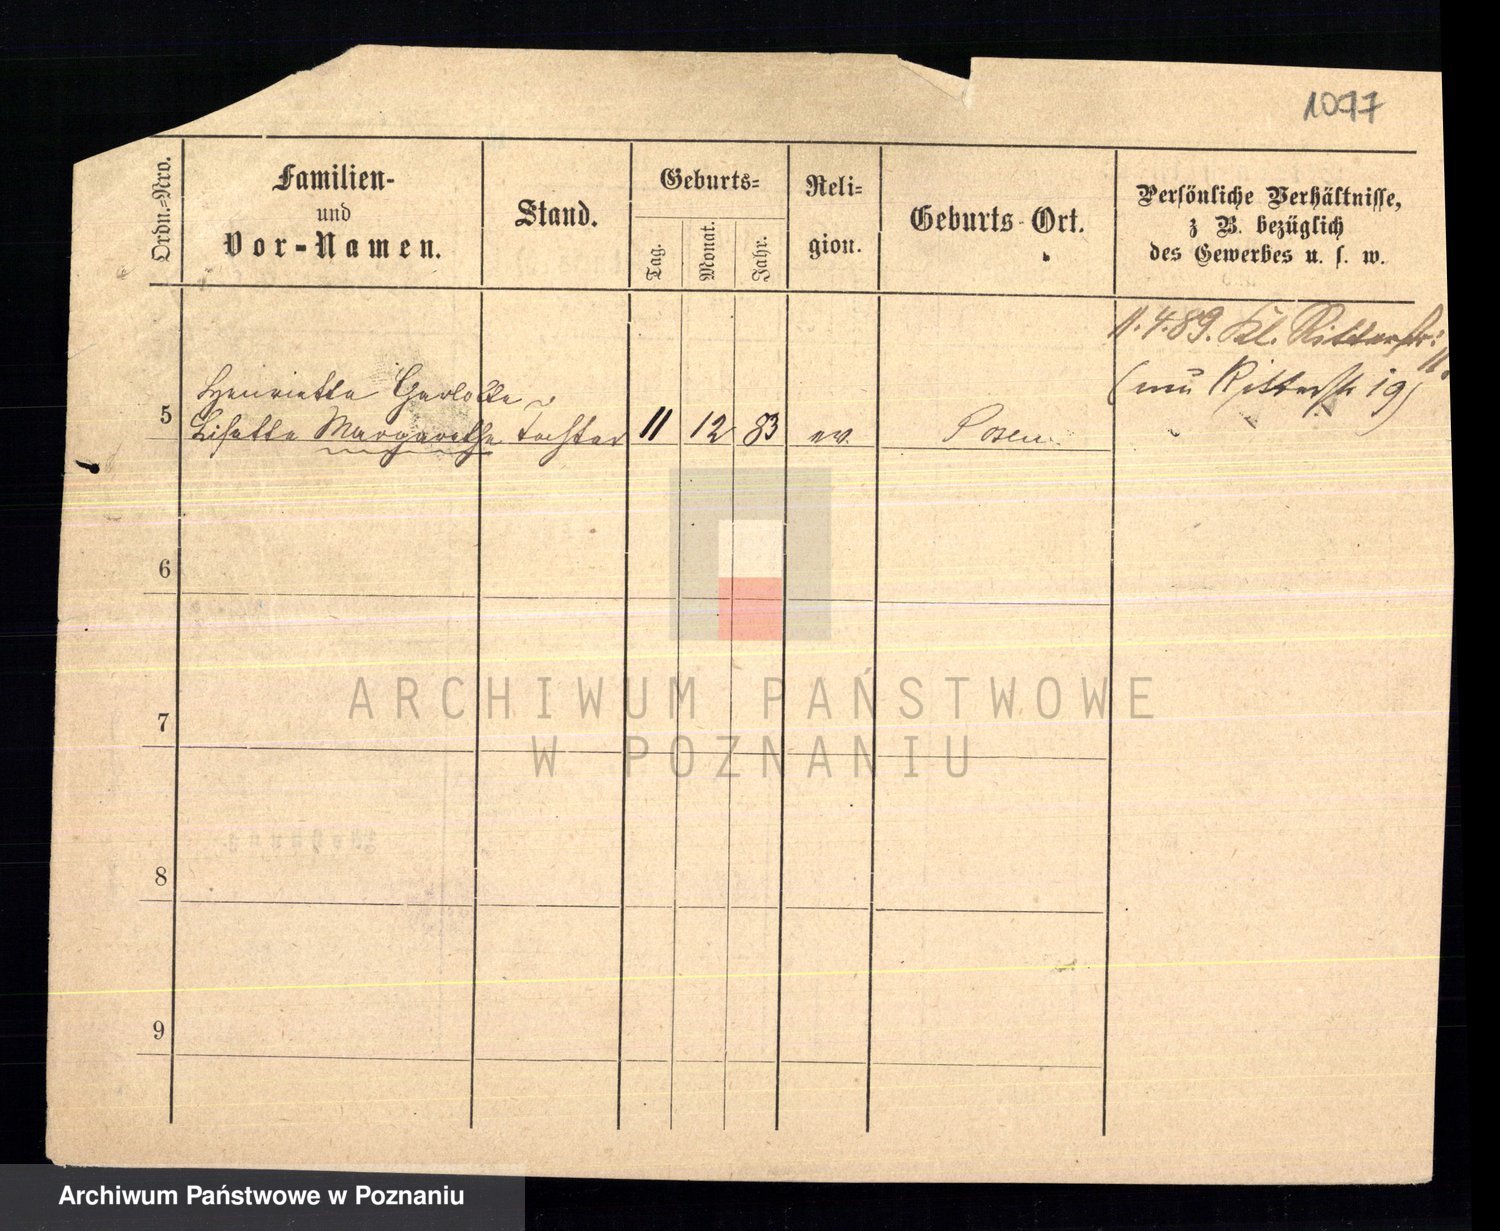 1077
Ordn.-Nro.
Familien-
und
Vor-Namen.
Stand.
Geburts-
Tag.
Monat.
Jahr.
Reli-
gion.
Geburts-Ort.
Persönliche Verhältnisse,
z B. bezüglich
des Gewerbes u. s. w.
1.4.89. Kl. Ritterstr: 11.
( Ritterstr 19)
Henriette
5 Lisette Margarethe Tochter 11 12 83 ev. Posen
6
7
8
9
ARCHIWUM PAŃSTWOWE
W POZNANIU
Archiwum Państwowe w Poznaniu